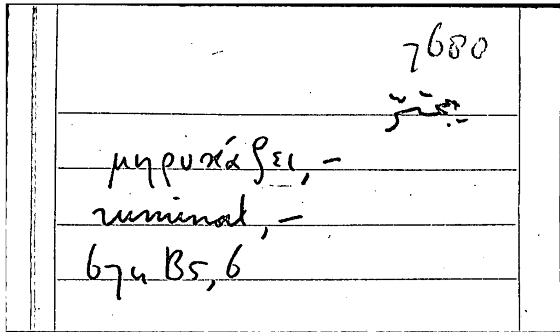 7680
μηρυκάζει,-
ruminat,-
B5, 6